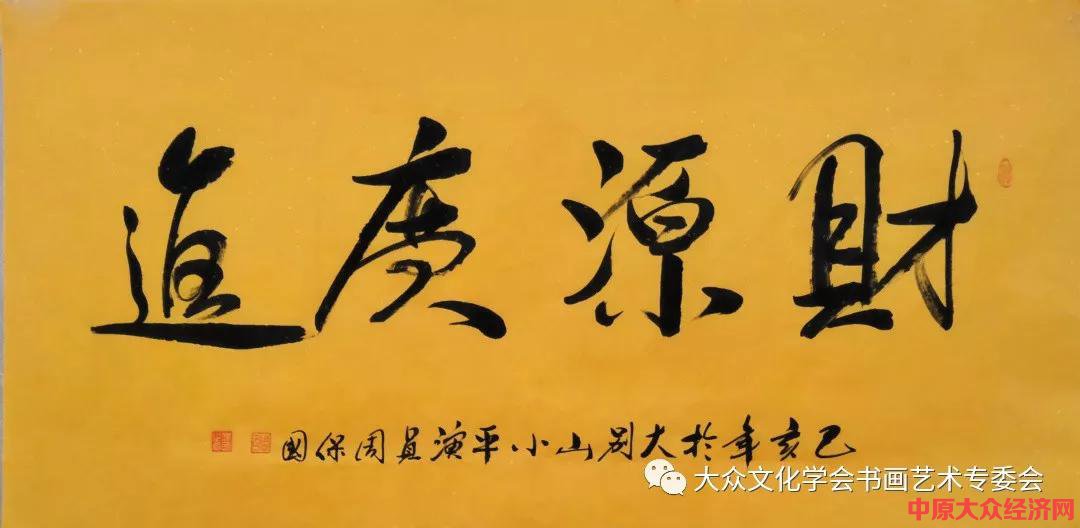 財源廣進
己亥年於大别山小平演員周保國
大众文化学会书画艺术专委会
中原大众经济网